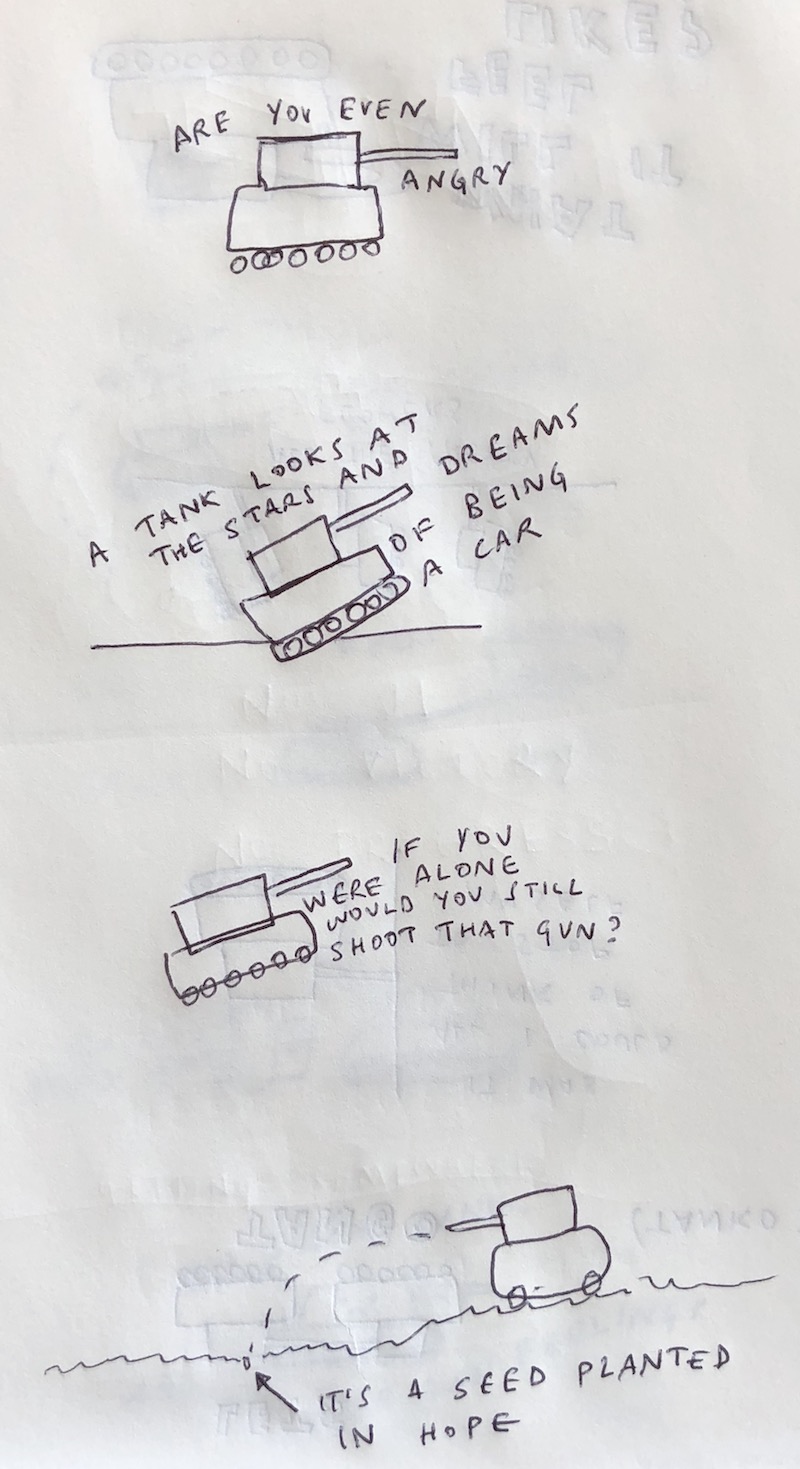 ARE YOU EVEN
ANGRY
A TANK LOOKS AT
THE STARS AND DREAMS
OF BEING
A CAR
IF YOU
WERE ALONE
WOULD YOU STILL
SHOOT THAT GUN?
IT'S A SEED PLANTED
IN HOPE